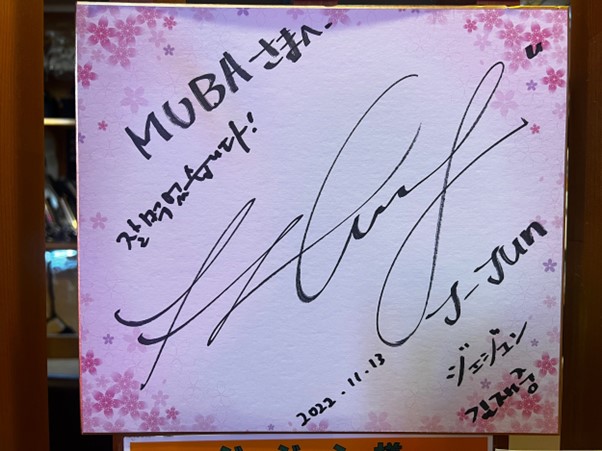 MUBAさまへ
잘 먹었습니다!
J-JUN
ジェジュン
김재중
2022.11.13